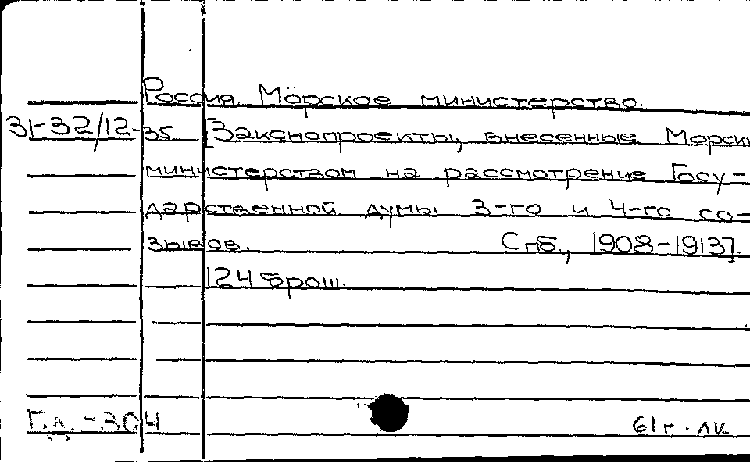 Россия. Морское министерство.
31-32/12-35 [Законопроекты, внесенные Морски
министерством на рассмотрение Госу-
дарственной думы 3-го и 4-го со-
зывов. Спб., 1908-1913].
124 брош.
Г.А. -304
61г. лк